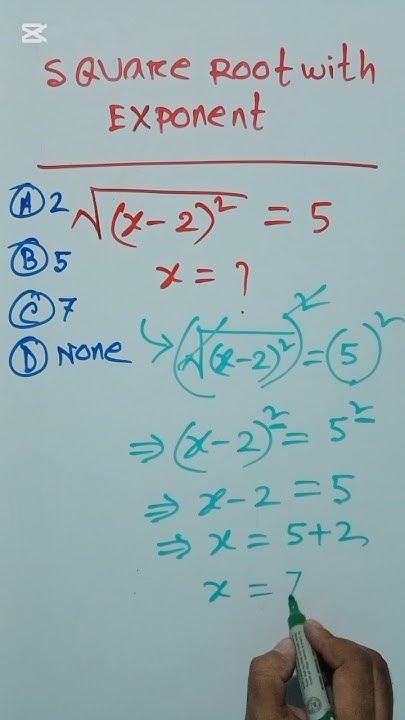 SQUARE ROOT with
EXPONENT
Ⓐ 2 √(x-2)² = 5
Ⓑ 5
x = ?
Ⓒ 7
Ⓓ None
(√(x-2)²)² = (5)²
⇒ (x-2)² = 5²
⇒ x-2 = 5
⇒ x = 5+2
x = 7